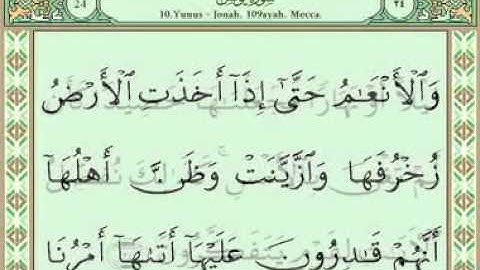 24
سورة يونس
٢٤
10.Yunus - Jonah. 109ayah. Mecca.
وَٱلْأَنْعَـٰمُ حَتَّىٰٓ إِذَآ أَخَذَتِ ٱلْأَرْضُ
زُخْرُفَهَا وَٱزَّيَّنَتْ وَظَنَّ أَهْلُهَآ
أَنَّهُمْ قَـٰدِرُونَ عَلَيْهَآ أَتَىٰهَآ أَمْرُنَا